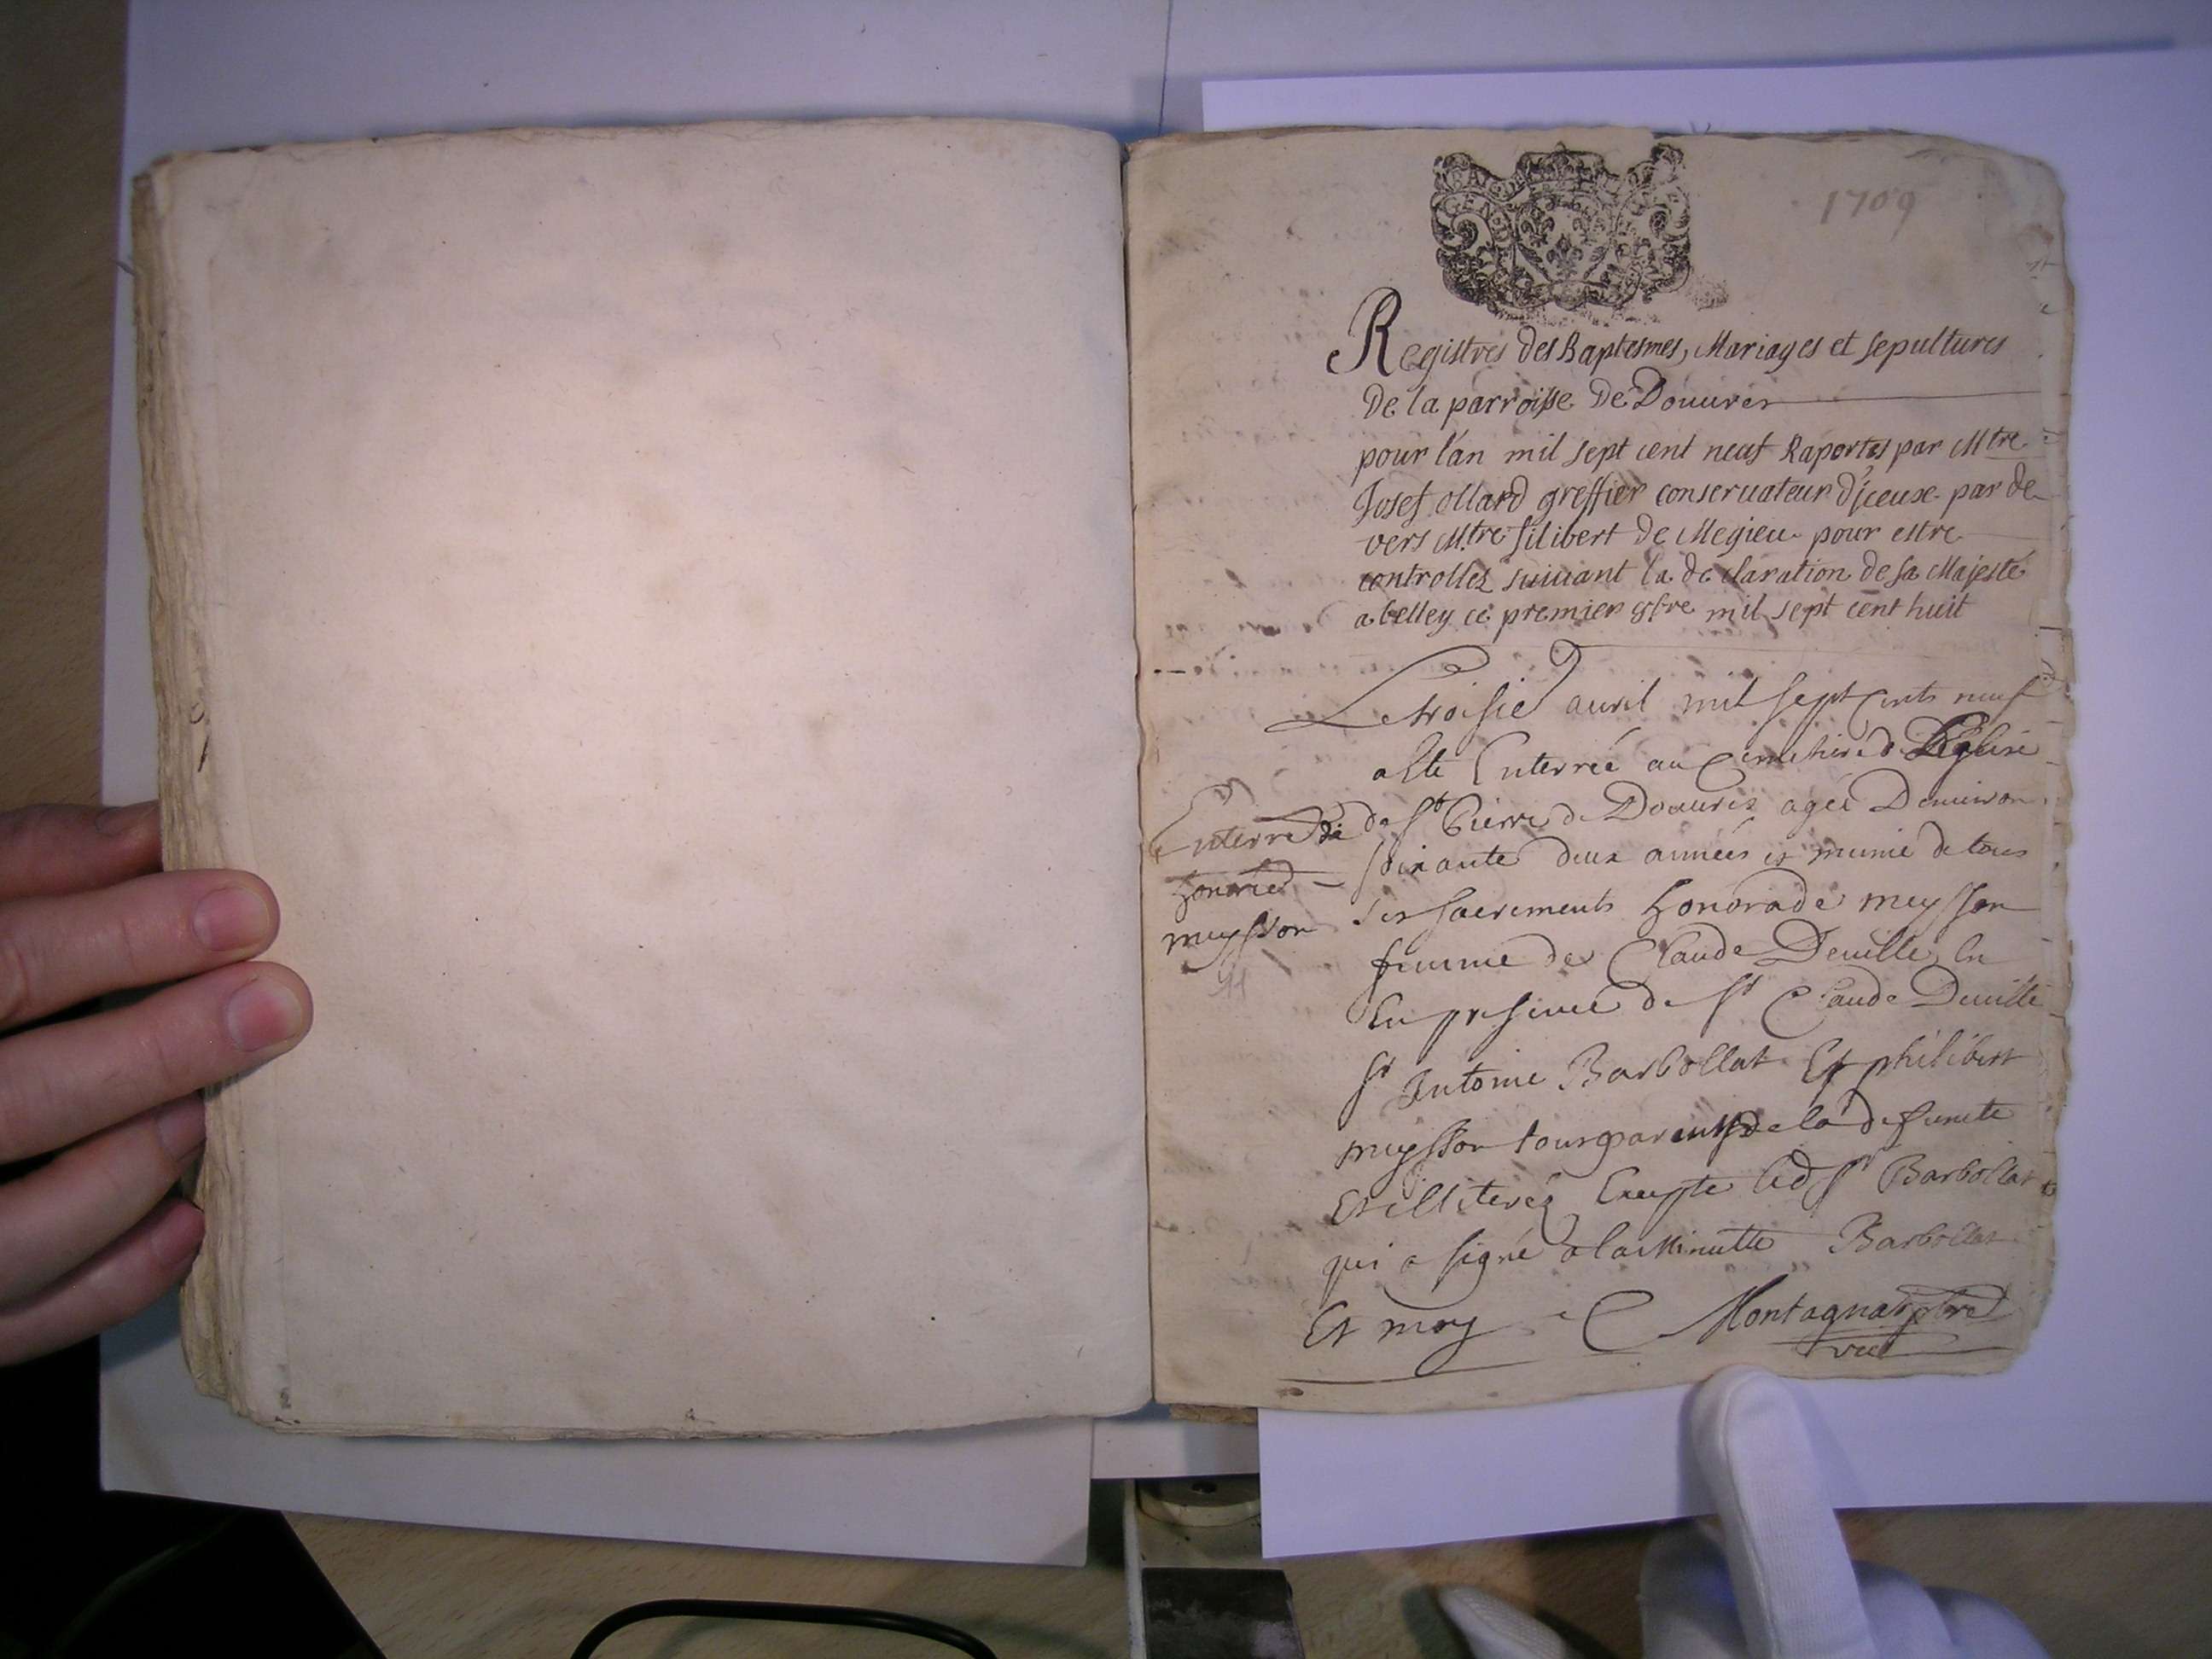 1709
GEN
Registres des Baptesmes, Mariages et sepultures
De la parroisse De Douures
pour l'an mil sept cent neuf Raportes par Mtre
Josef ollard greffier conseruateur d'jceux par de
vers Mtre filibert de Megieu pour estre
controllez suiuant la declaration de sa Majesté
a belley ce premier 8bre mil sept cent huit
Le troisie auril mil sept cents neuf
a Este Enterrée au Cemetiere de L'Eglise
de St Pierre de Douures agée Denuiron
soixante deux années et munie de tous
ses sacrements honorade meysson
femme de Claude Deuille En
En presence de Sr Claude Deuille
Sr Antoine Barbollat Et philibert
meysson tous parents de la defuncte
Et illiterés Excepte led Sr Barbollat
qui a signé a la Minutte Barbollat
Et moy Montagnat ptre
vic
Enterre de
honorade
meysson